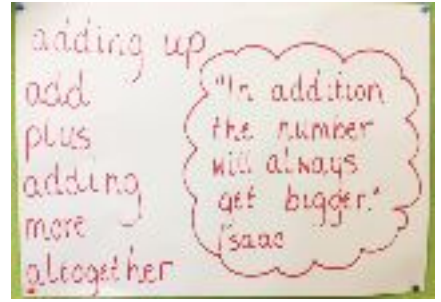 adding up
add
plus
adding
more
altogether
"In addition
the number
will always
get bigger."
Isaac